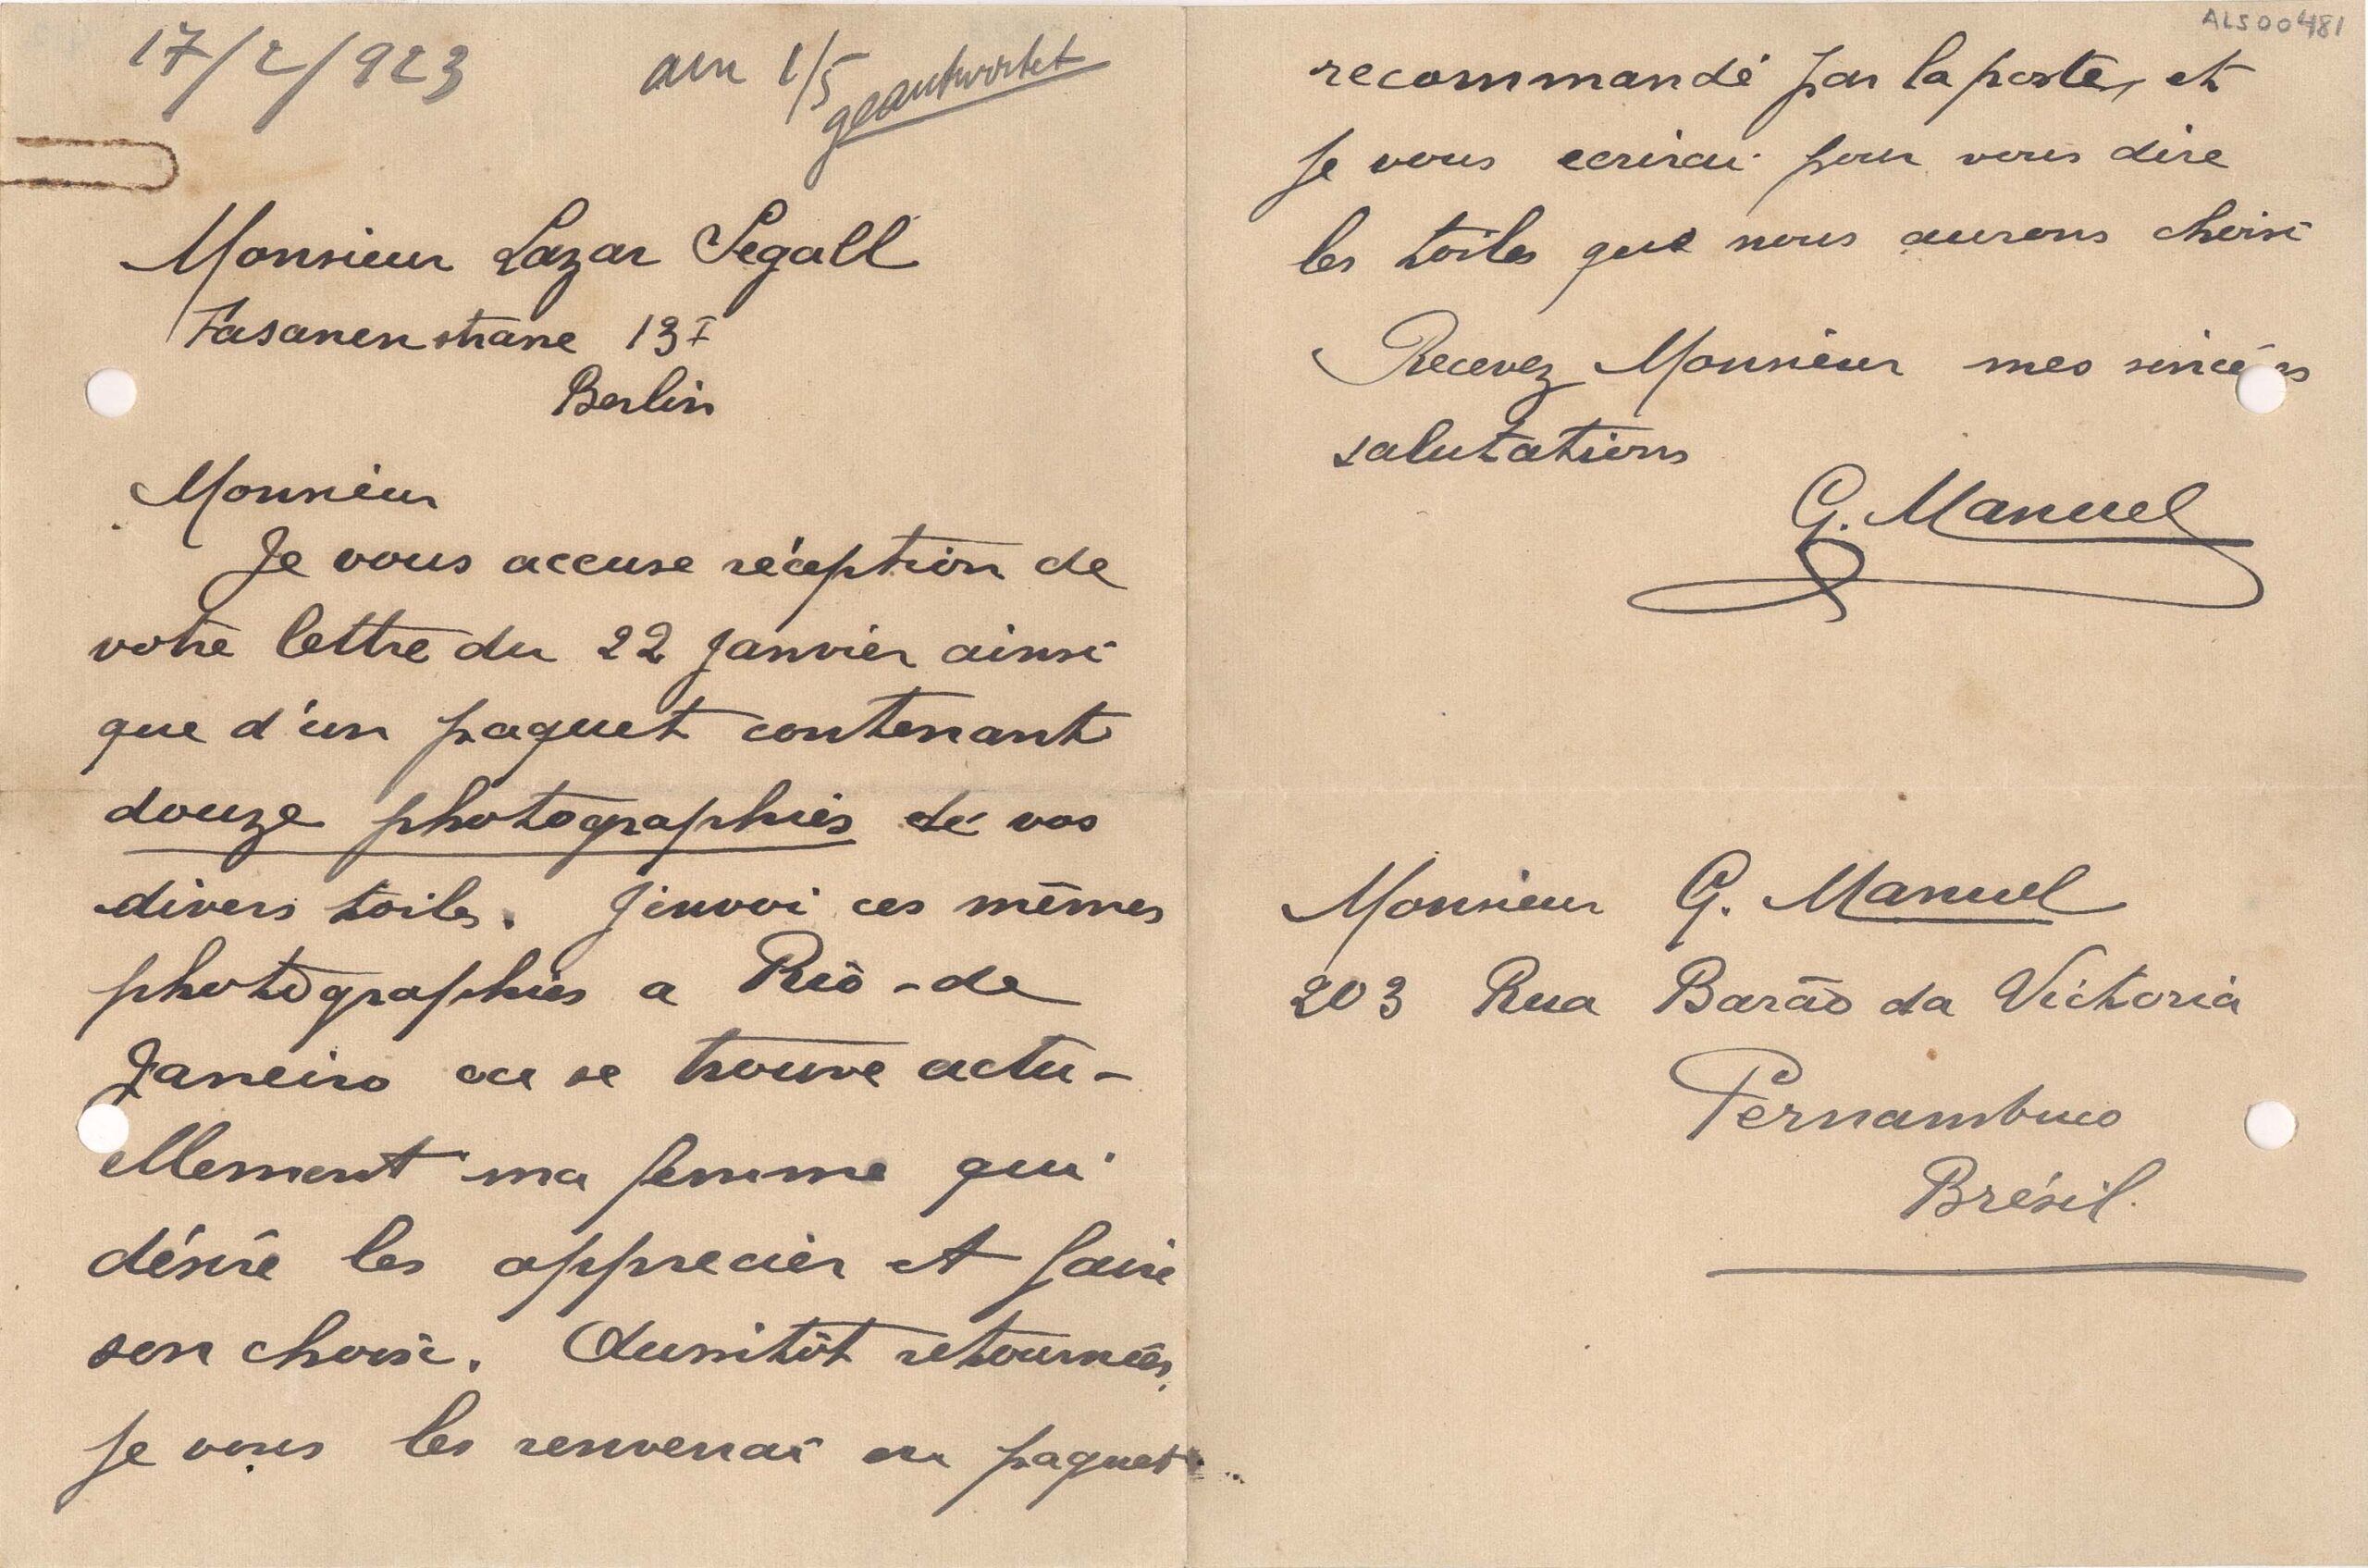 17/2/923
am 1/5 geantwortet
Monsieur Lazar Segall
Fasanenstrane 13 I
Berlin
Monsieur
Je vous accuse réception de
votre lettre du 22 Janvier ainsi
que d'un paquet contenant
douze photographies de vos
divers toiles. J'envoi ces mêmes
photographies a Rio-de
Janeiro ou se trouve actu-
ellement ma femme qui
désire les apprecier et faire
son choix. Aussitôt retournées,
je vous les renverrai en paquet
ALS00481
recommandé par la poste, et
je vous ecrirai pour vous dire
les toiles que nous aurons choisi
Recevez Monsieur mes sincères
salutations
G. Manuel
Monsieur G. Manuel
203 Rua Barão da Victoria
Pernambuco
Brésil.